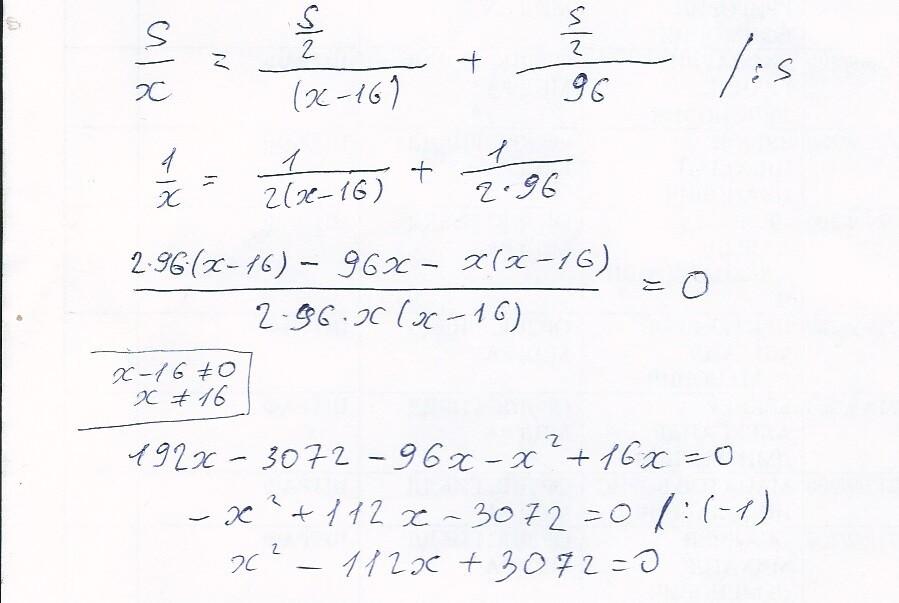 S/x = (S/2)/(x-16) + (S/2)/96 /:S
1/x = 1/(2(x-16)) + 1/(2·96)
(2·96·(x-16) - 96x - x(x-16))/(2·96·x(x-16)) = 0
x-16≠0
x≠16
192x - 3072 - 96x - x² + 16x = 0
-x² + 112x - 3072 = 0 /:(-1)
x² - 112x + 3072 = 0